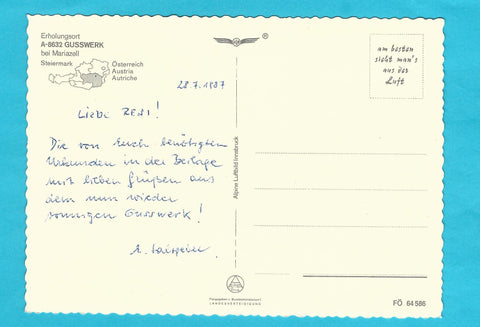 Erholungsort
A-8632 GUSSWERK
bei Mariazell
Steiermark
Österreich
Austria
Autriche
28.7.1987
Liebe Resi!
Die von Euch benötigten
Urkunden in der Beilage
mit lieben Grüßen aus
dem nun wieder
sonnigen Gusswerk!
A.
Alpine Luftbild Innsbruck
am besten
sieht man's
aus der
Luft
Freigegeben v. Bundesministerium f.
LANDESVERTEIDIGUNG
FÖ 64586